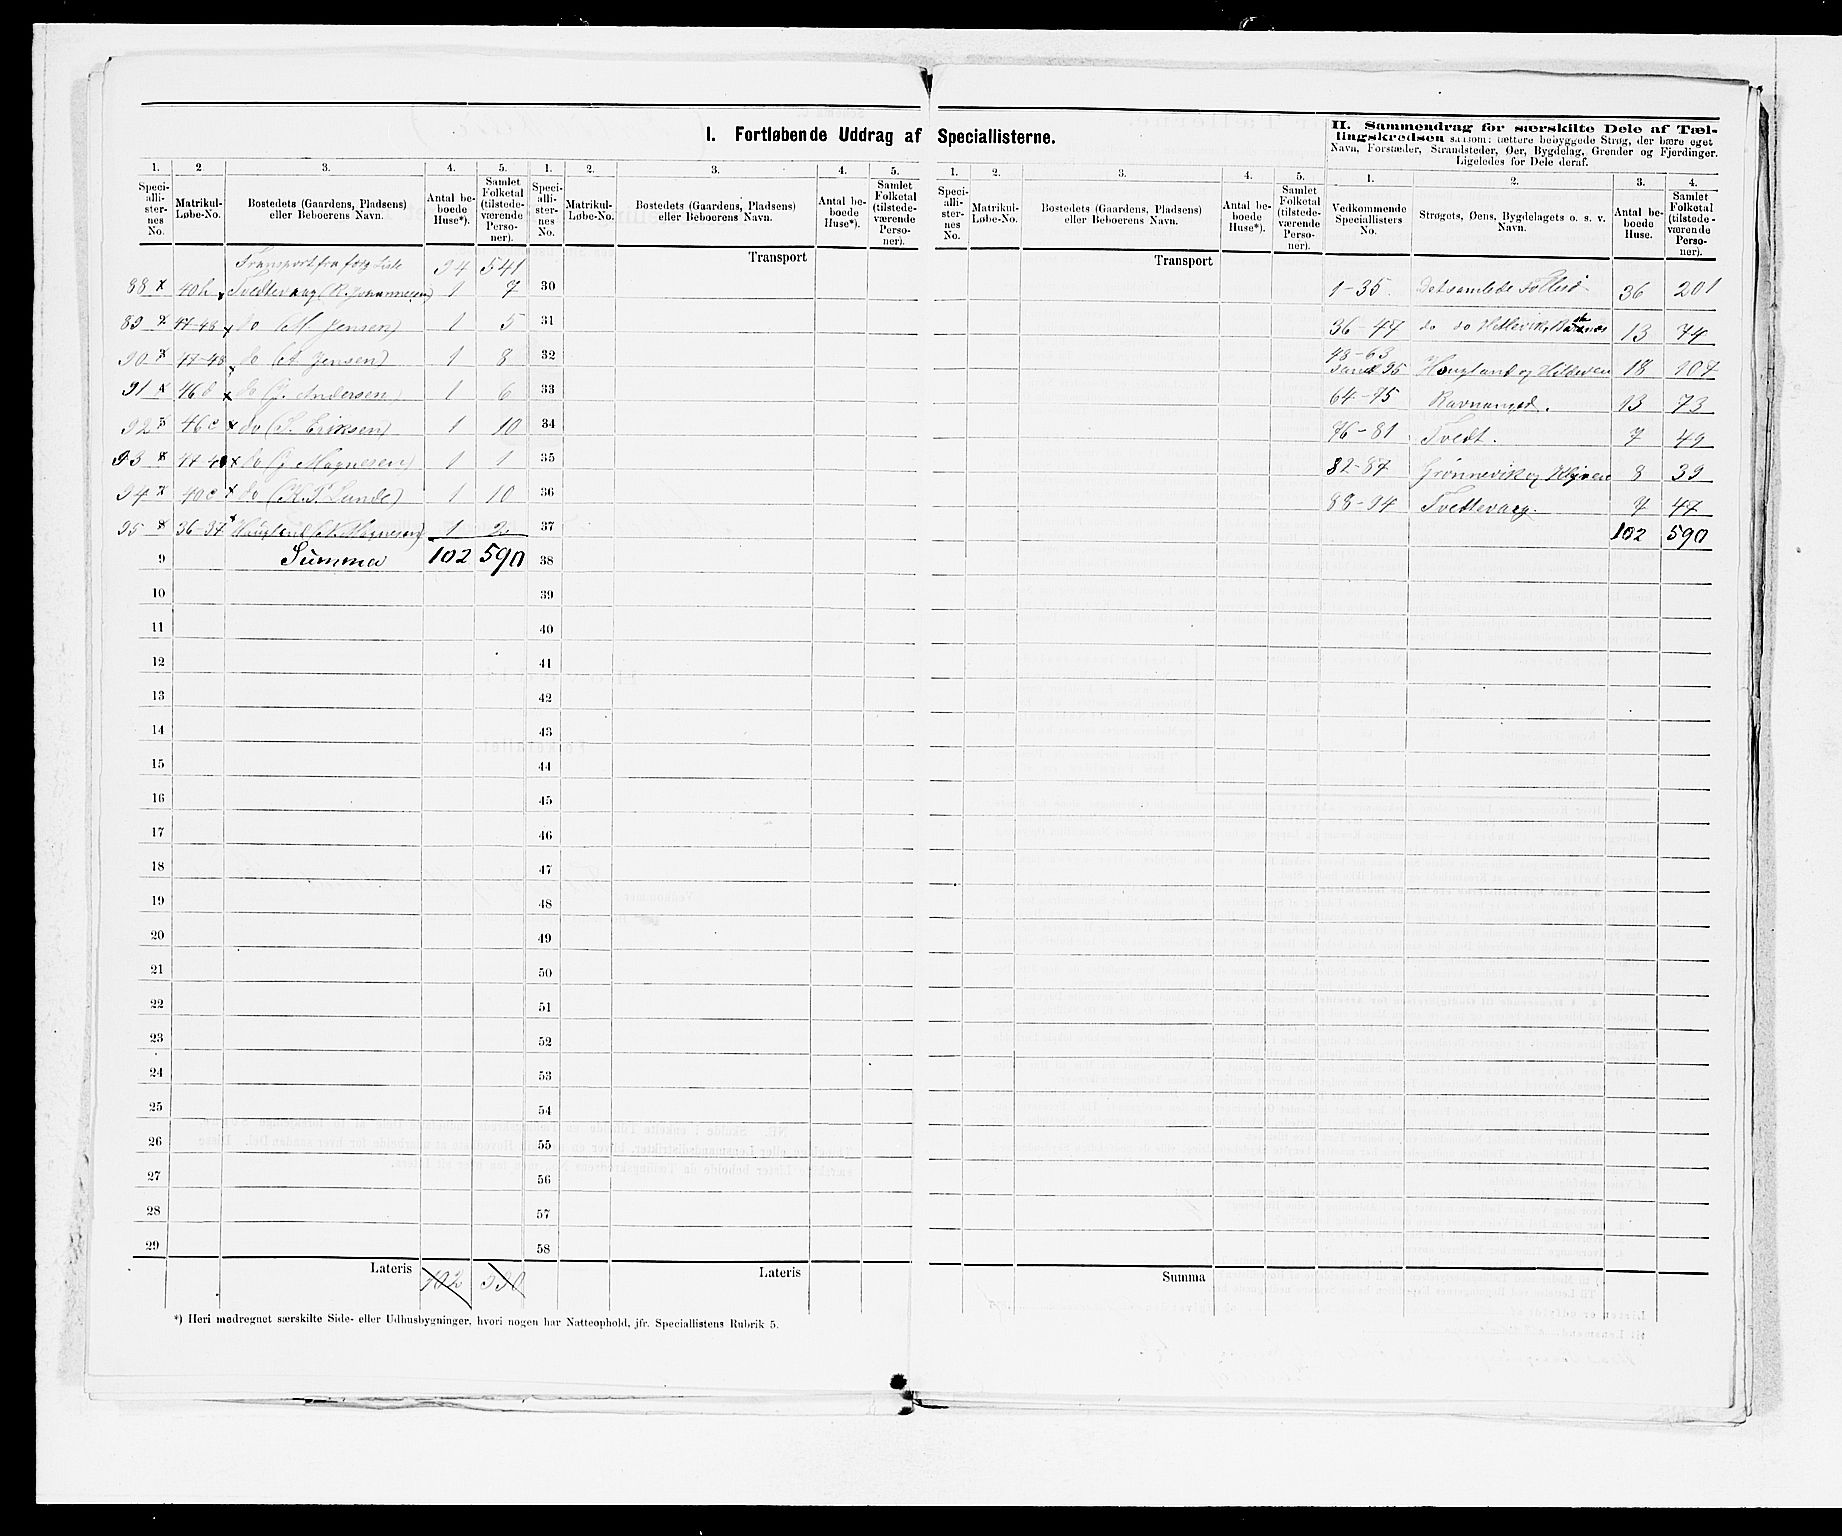 I. Fortløbende Uddrag af Speciallisterne.
1. 2 3. 4. 5.
Speciallisternes No. Matrikul-Løbe-No. Bostedets (Gaardens, Pladsens) eller Beboerens Navn. Antal beboede Huse*). Samlet Folketal (tilstedeværende Personer).
Transport fra følg. Liste 94 541
88 x 40 h x Tvedtevaag (R. Johannesen) 1 7
89 x 47-48 x do (M. Jensen) 1 5
90 x 47-48 x do (A. Jensen) 1 8
91 x 46 d x do (J. Andersen) 1 6
92 x 46 c x do (S. Eriksen) 1 10
93 x 47-48 x do (J. Magnesen) 1 1
94 x 40 c x do (K. T. Lunde) 1 10
95 x 36-37 x Haugland (A. Magnesen) 1 2
9 Summa 102 590
10
11
12
13
14
15
16
17
18
19
20
21
22
23
24
25
26
27
28
29
Lateris 102 590
*) Heri medregnet særskilte Side- eller Udhusbygninger, hvori nogen har Natteophold, jfr. Speciallistens Rubrik 5.
1. 2. 3. 4. 5.
Speciallisternes No. Matrikul-Løbe-No. Bostedets (Gaardens, Pladsens) eller Beboerens Navn. Antal beboede Huse*). Samlet Folketal (tilstedeværende Personer).
Transport
30
31
32
33
34
35
36
37
38
39
40
41
42
43
44
45
46
47
48
49
50
51
52
53
54
55
56
57
58
Lateris
1. 2. 3. 4. 5.
Speciallisternes No. Matrikul-Løbe-No. Bostedets (Gaardens, Pladsens) eller Beboerens Navn. Antal beboede Huse*). Samlet Folketal (tilstedeværende Personer).
Transport
Summa
II. Sammendrag for særskilte Dele af Tæl-
lingskredsen saasom: tættere bebyggede Strøg, der bære eget
Navn, Forstæder, Strandsteder, Øer, Bygdelag, Grender og Fjerdinger.
Ligeledes for Dele deraf.
1. 2. 3. 4.
Vedkommende Speciallisters No. Strøgets, Øens, Bygdelagets o. s. v. Navn. Antal beboede Huse. Samlet Folketal (tilstedeværende Personer).
1-35. Det samlede Follesø 36 201
36-47 do do Hetlevik, 13 74
48-63 samt 95 Hougland og Hildesen 18 107
64-75 Ravnanger. 13 73
76-81 Tvedt. 7 49
82-87 Grønnevik og 8 39
88-94 Tvedtevaag. 7 47
102 590